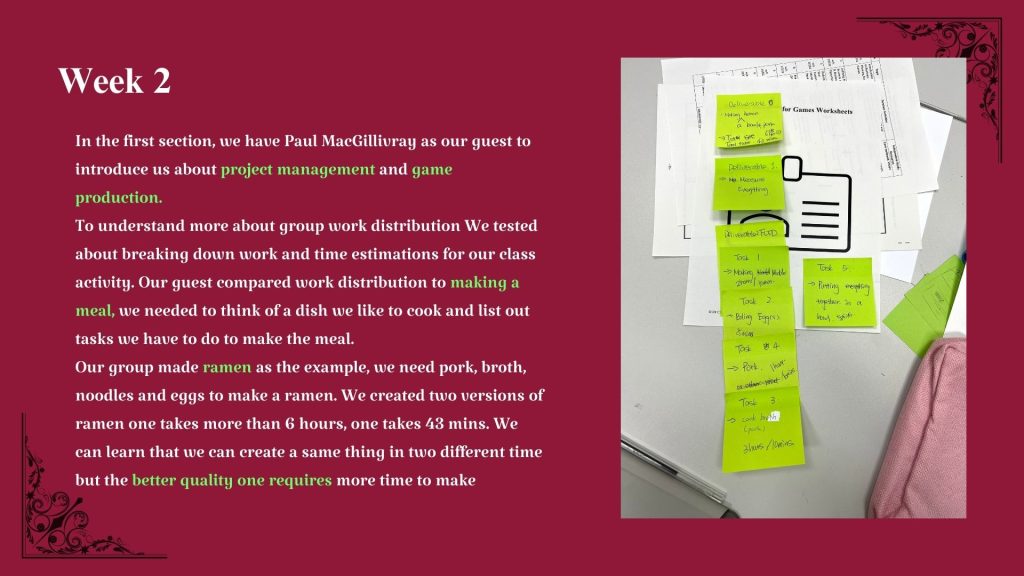 Week 2
In the first section, we have Paul MacGillivray as our guest to
introduce us about project management and game
production.
To understand more about group work distribution We tested
about breaking down work and time estimations for our class
activity. Our guest compared work distribution to making a
meal, we needed to think of a dish we like to cook and list out
tasks we have to do to make the meal.
Our group made ramen as the example, we need pork, broth,
noodles and eggs to make a ramen. We created two versions of
ramen one takes more than 6 hours, one takes 43 mins. We
can learn that we can create a same thing in two different time
but the better quality one requires more time to make
for Games Worksheets
Deliverable
Making Ramen
Deliverable 1.
Measure
Everything
Task 1
→ Making
Task 2
Task 4
→ Pork.
Task 3
→ cook
3 hours / 30 mins
Task 5.
→ Putting everything
together in a
bowl.